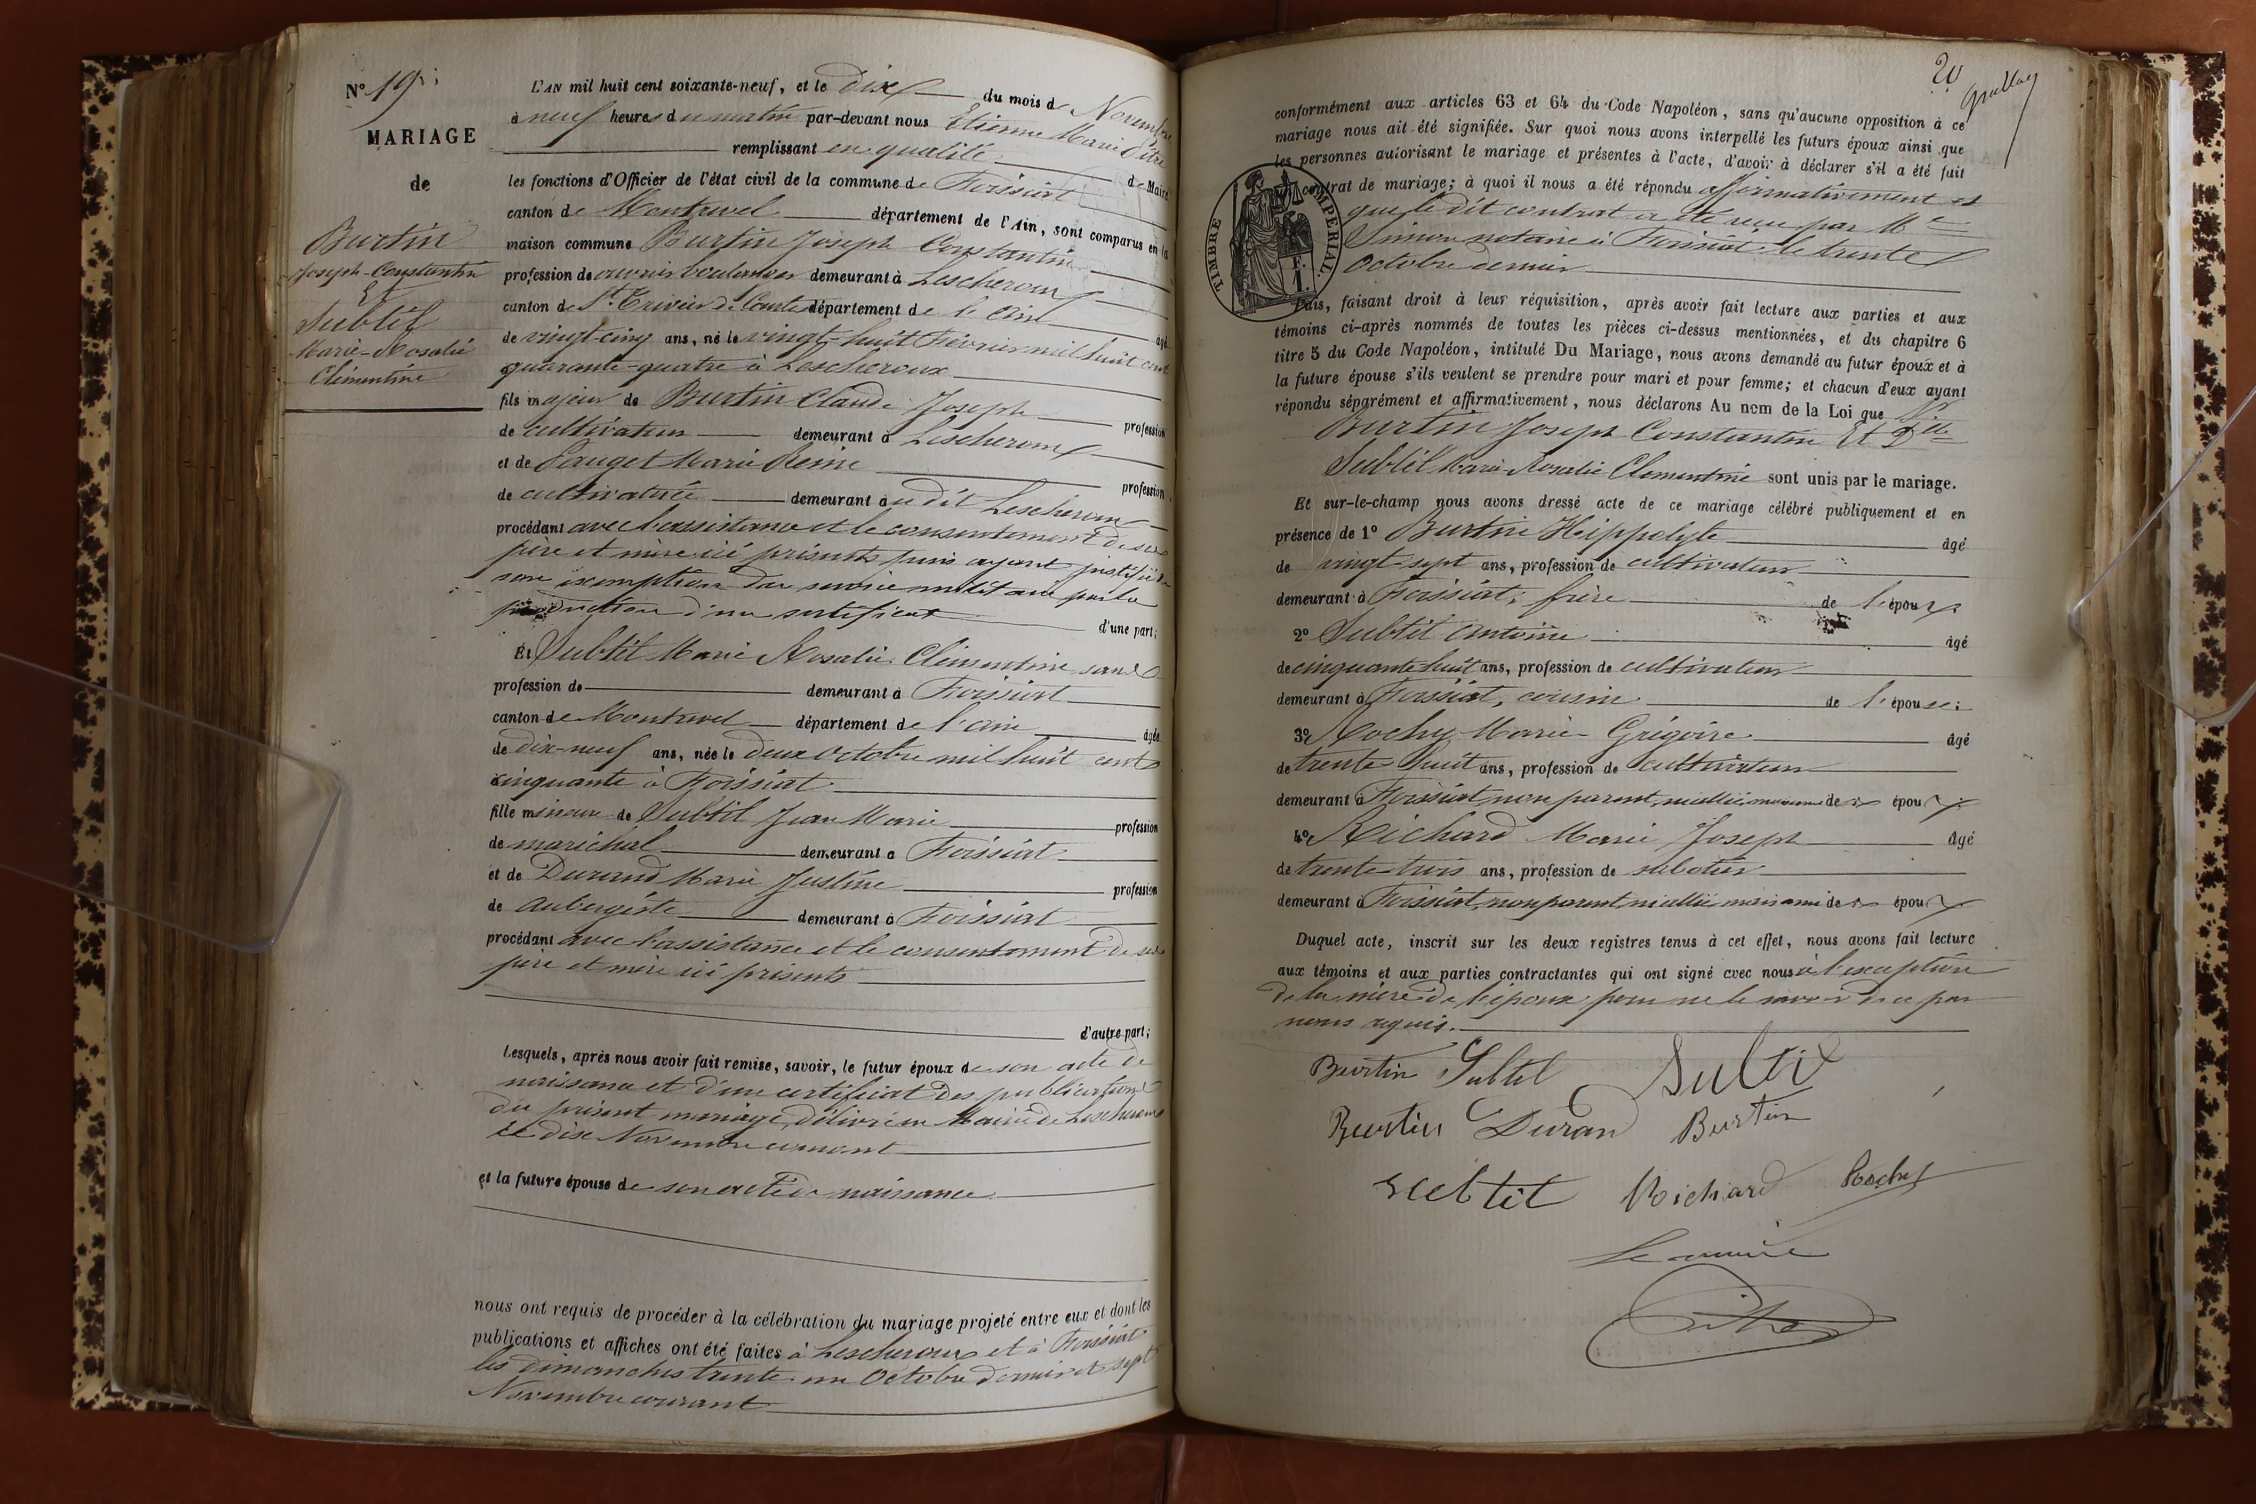 N° 19
MARIAGE
de
Burtin
Joseph-Constantin
Et
Subtil
Marie-Rosalie
Clémentine
L'AN mil huit cent soixante-neuf, et le dix du mois de Novembre
à neuf heures du matin par-devant nous Etienne Marie
remplissant en qualité de Maire
les fonctions d'Officier de l'état civil de la commune de Foissiat
canton de Montrevel département de l'Ain, sont comparus en la
maison commune Burtin Joseph Constantin
profession de ouvrier boulanger demeurant à Lescheroux
canton de St Trivier de Courtes département de l'Ain âgé
de vingt-cinq ans, né le vingt-huit Février mil huit cent
quarante-quatre à Lescheroux
fils majeur de Burtin Claude Joseph profession
de cultivateur demeurant à Lescheroux
et de Pauget Marie Reine profession
de cultivatrice demeurant au dit Lescheroux
procédant avec l'assistance et le consentement de ses
père et mère ici présents puis ayant justifié de
son exemption du service militaire par la
production d'un certificat d'une part;
Et Subtil Marie Rosalie Clémentine sans
profession de demeurant à Foissiat
canton de Montrevel département de l'Ain âgée
de dix-neuf ans, née le deux Octobre mil huit cent
cinquante à Foissiat
fille mineure de Subtil Jean Marie profession
de maréchal demeurant à Foissiat
et de Durand Marie Justine profession
de aubergiste demeurant à Foissiat
procédant avec l'assistance et le consentement de ses
père et mère ici présents
d'autre part;
Lesquels, après nous avoir fait remise, savoir, le futur époux de son acte de
naissance et d'un certificat des publications
du présent mariage délivré en Mairie de Lescheroux
le dix Novembre courant
et la future épouse de son acte de naissance
nous ont requis de procéder à la célébration du mariage projeté entre eux et dont les
publications et affiches ont été faites à Lescheroux et à Foissiat
les dimanches trente-un Octobre dernier et sept
Novembre courant
20
conformément aux articles 63 et 64 du Code Napoléon, sans qu'aucune opposition à ce
mariage nous ait été signifiée. Sur quoi nous avons interpellé les futurs époux ainsi que
les personnes autorisant le mariage et présentes à l'acte, d'avoir à déclarer s'il a été fait
contrat de mariage; à quoi il nous a été répondu affirmativement et
que le dit contrat a été reçu par Me
Simon notaire à Foissiat le trente
Octobre dernier
TIMBRE IMPERIAL.
F.
1.
Puis, faisant droit à leur réquisition, après avoir fait lecture aux parties et aux
témoins ci-après nommés de toutes les pièces ci-dessus mentionnées, et du chapitre 6
titre 5 du Code Napoléon, intitulé Du Mariage, nous avons demandé au futur époux et à
la future épouse s'ils veulent se prendre pour mari et pour femme; et chacun d'eux ayant
répondu séparément et affirmativement, nous déclarons Au nom de la Loi que
Burtin Joseph Constantin Et Dlle
Subtil Marie Rosalie Clémentine sont unis par le mariage.
Et sur-le-champ nous avons dressé acte de ce mariage célébré publiquement et en
présence de 1° Burtin Hippolyte âgé
de vingt-sept ans, profession de cultivateur
demeurant à Foissiat; frère de l'époux;
2° Subtil Antoine âgé
de cinquante huit ans, profession de cultivateur
demeurant à Foissiat, cousin de l'épouse;
3° Rochy Marie-Grégoire âgé
de trente-huit ans, profession de cultivateur
demeurant à Foissiat, non parent, ni allié, mais ami de époux;
4° Richard Marie Joseph âgé
de trente-trois ans, profession de sabotier
demeurant à Foissiat, non parent, ni allié, mais ami de époux
Duquel acte, inscrit sur les deux registres tenus à cet effet, nous avons fait lecture
aux témoins et aux parties contractantes qui ont signé avec nous à l'exception
de la mère de l'époux pour ne le savoir de ce par
nous requis.
Burtin Subtil Subtil
Burtin Duran Burtin
Subtil Richard Rochy
Le maire